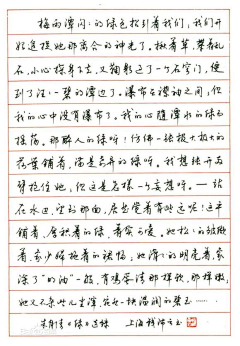 梅雨潭闪闪的绿色招引着我们,我们开
始追捉她那离合的神光了。揪着草,攀着乱
石,小心探身下去,又鞠躬过了一个石穹门,便
到了汪汪一碧的潭边了。瀑布在襟袖之间,但
我的心中已没有瀑布了。我的心随潭水的绿而
摇荡。那醉人的绿呀!仿佛一张极大极大的
荷叶铺着,满是奇异的绿呀。我想张开两
臂抱住她,但这是怎样一个妄想呀。——站
在水边,望到那面,居然觉着有些远呢!这平
铺着,厚积着的绿,着实可爱。她松松的皱缬
着,像少妇拖着的裙幅;她滑滑的明亮着,像
涂了“明油”一般,有鸡蛋清那样软,那样嫩;
她又不杂些儿尘滓,宛然一块温润的碧玉……
朱自清《绿》选抄 上海